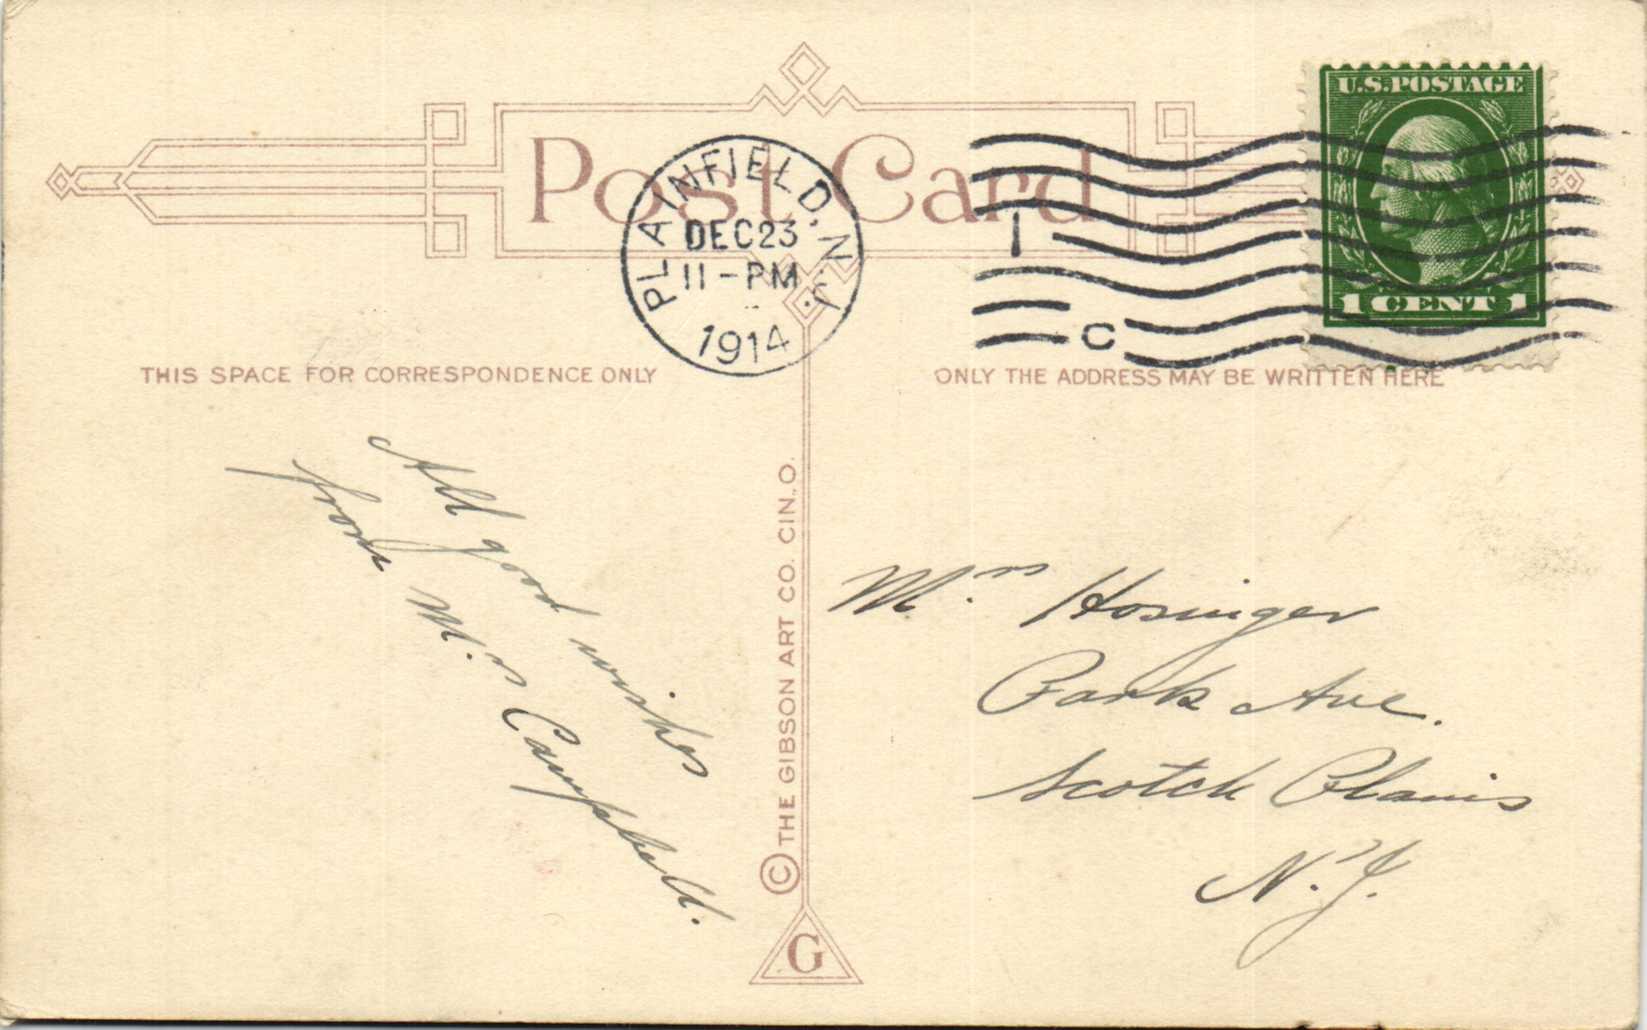 Post Card
U.S.POSTAGE
1 CENT 1
PLAINFIELD, N.J.
DEC 23
11-PM
1914
1
C
THIS SPACE FOR CORRESPONDENCE ONLY
ONLY THE ADDRESS MAY BE WRITTEN HERE
All good wishes
from Mrs Campbell.
© THE GIBSON ART CO. CIN., O.
G
Mrs Hosinger
Park Ave.
Scotch Plains
N.J.